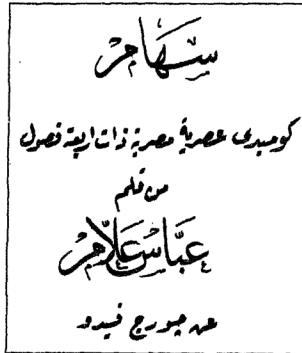 سهام
كوميدى عصرية مصرية ذات اربعة فصول
من قلم
عباس علام
عن جورج فيدو